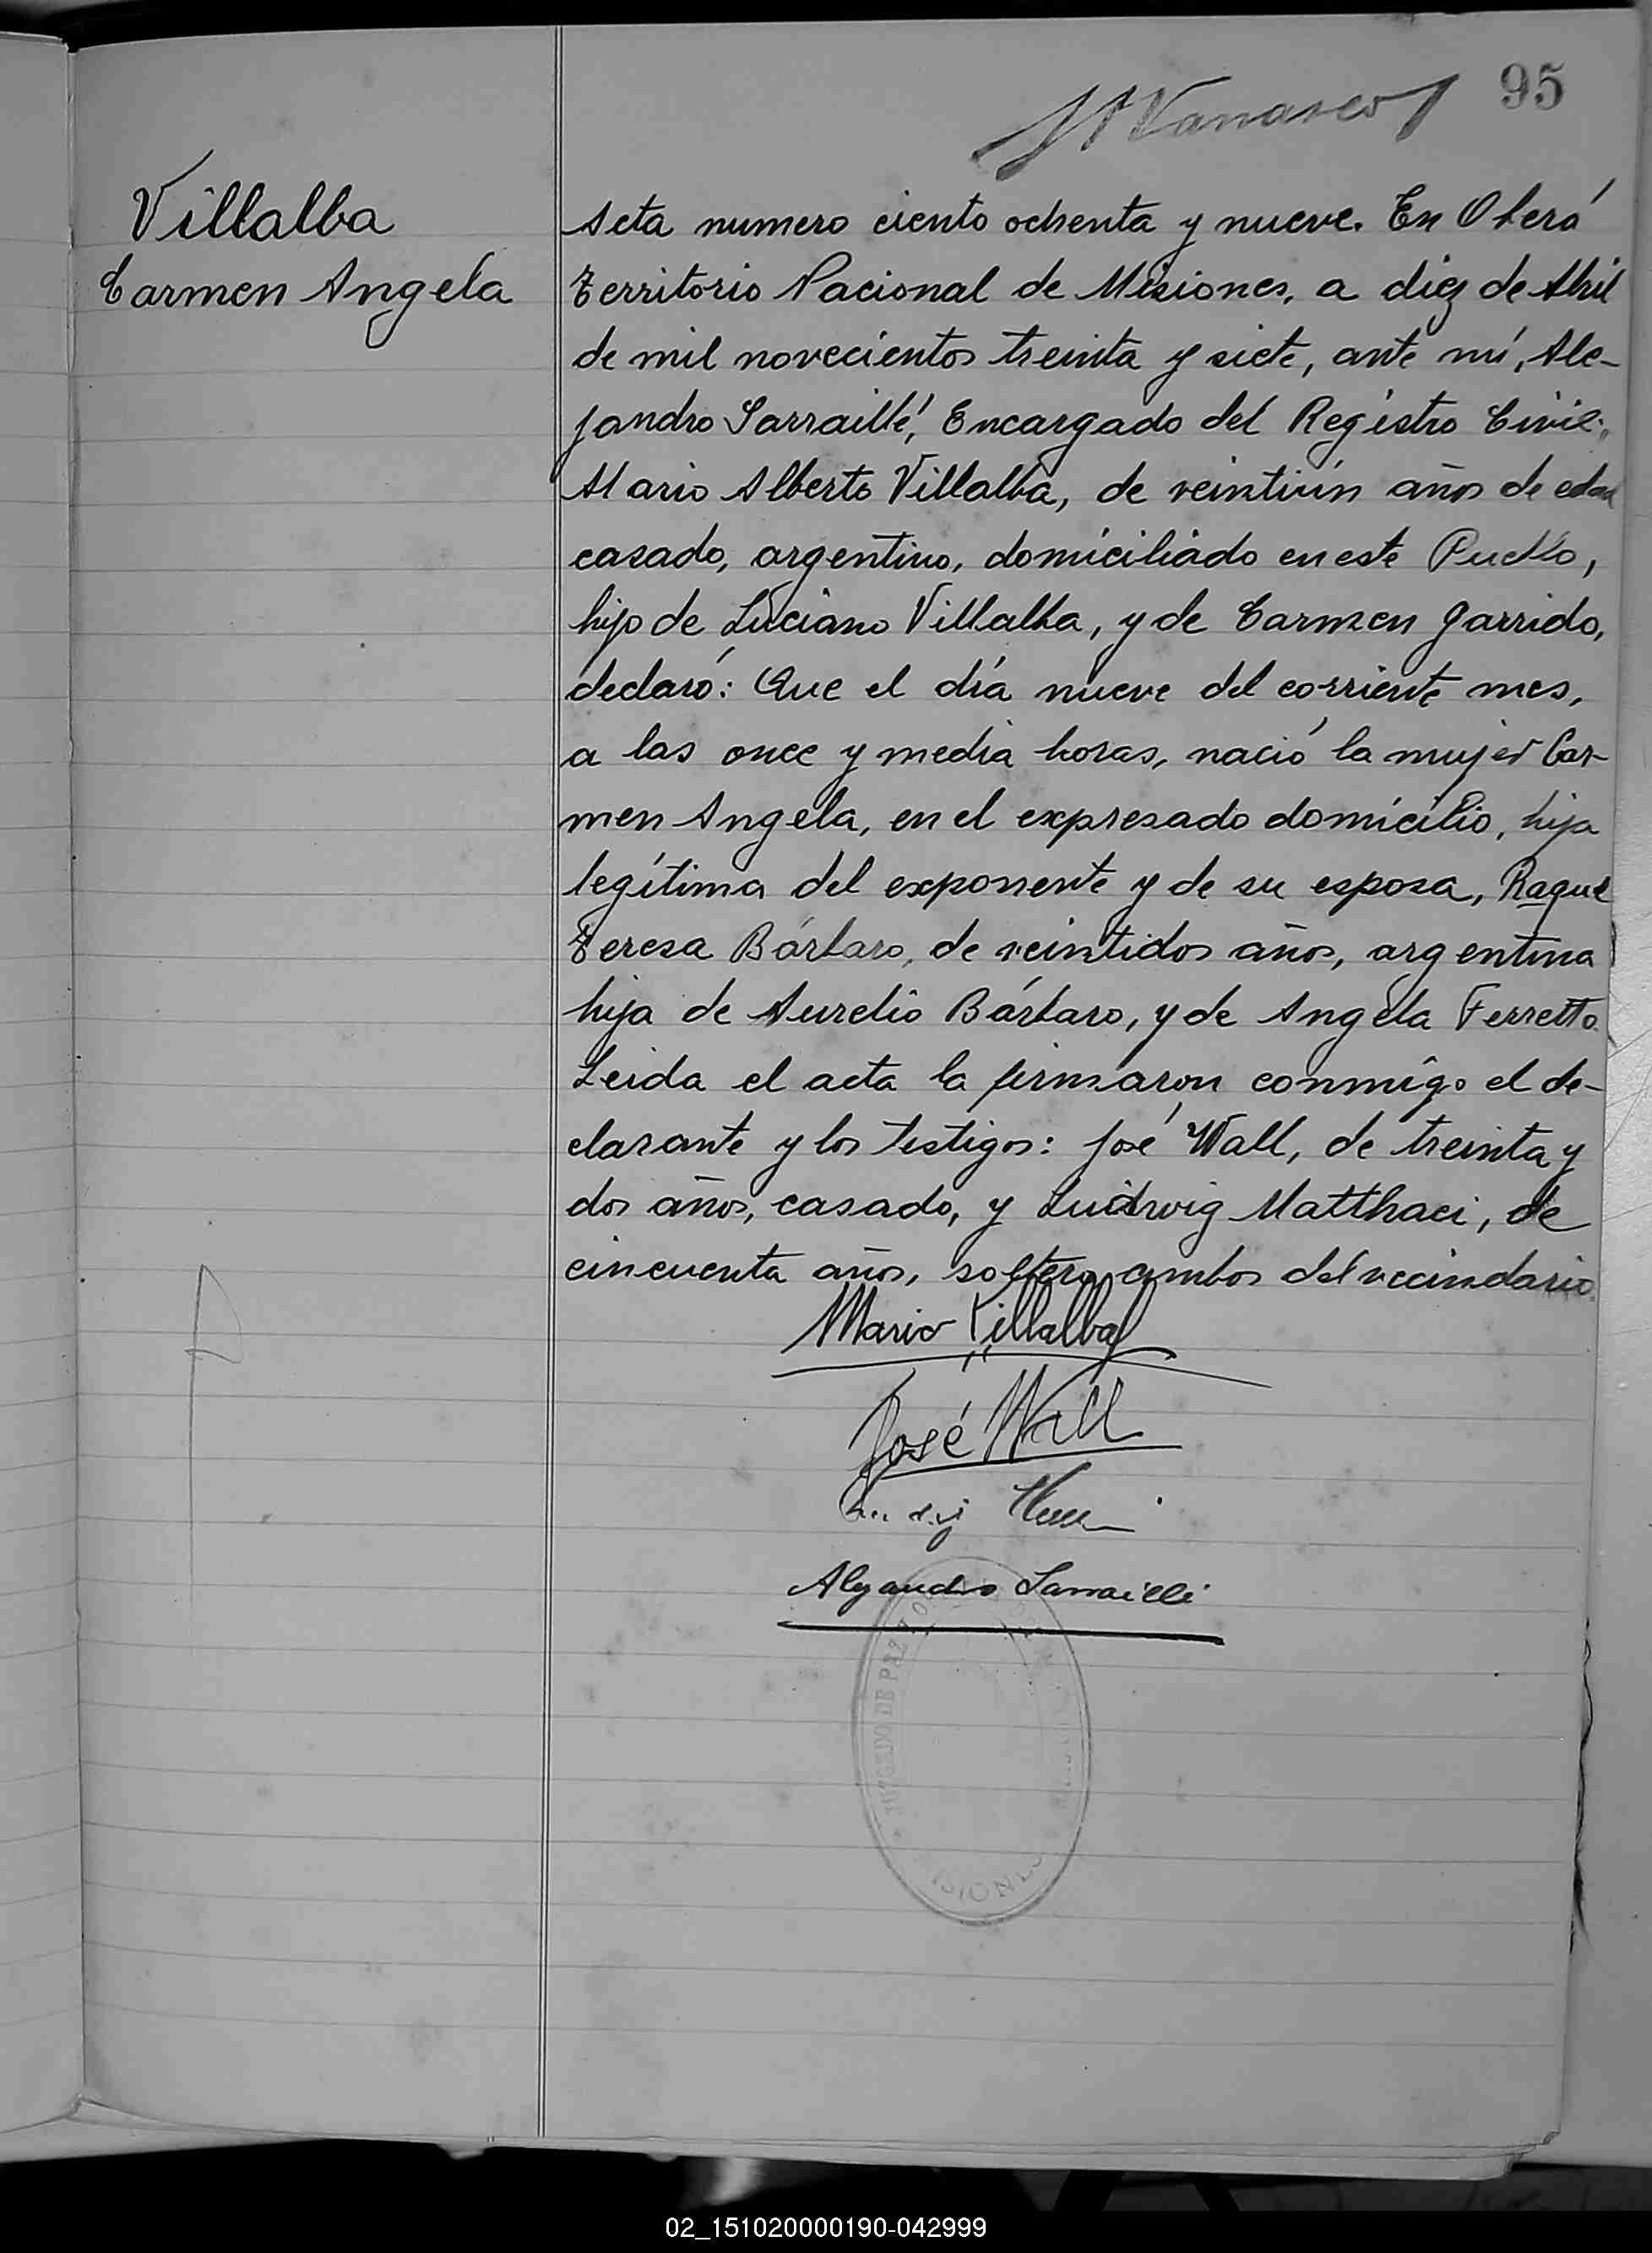 95
Villalba
Carmen Angela
Acta numero ciento ochenta y nueve. En Oberá
Territorio Nacional de Misiones, a diez de Abril
de mil novecientos treinta y siete, ante mí, Ale-
jandro Sarraillé, Encargado del Registro Civil:
Mario Alberto Villalba, de veintiún años de edad
casado, argentino, domiciliado en este Pueblo,
hijo de Luciano Villalba, y de Carmen Garrido,
declaró: Que el día nueve del corriente mes,
a las once y media horas, nació la mujer Car-
men Angela, en el expresado domicilio, hija
legítima del exponente y de su esposa, Raquel
Teresa Bárbaro, de veintidos años, argentina
hija de Aurelio Bárbaro, y de Angela Ferretto.
Leida el acta la firmaron conmigo el de-
clarante y los testigos: José Wall, de treinta y
dos años, casado, y Ludwig Matthaei, de
cincuenta años, soltero, ambos del vecindario.
Mario Villalba
José Wall
Alejandro Sarraillé
JUZGADO DE PAZ
MISIONES
02_151020000190-042999